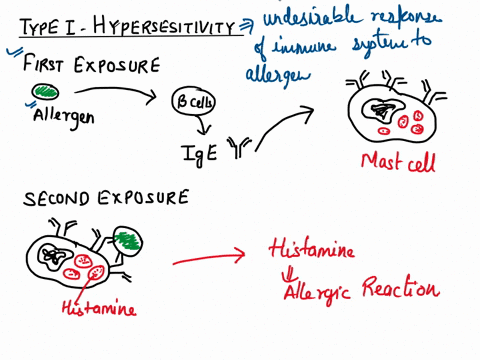 TYPE I - HYPERSESITIVITY ⇒ undesirable response
of immune system to
allergen
FIRST EXPOSURE
Allergen
B cells
IgE
Mast cell
SECOND EXPOSURE
Histamine
Histamine
Allergic Reaction